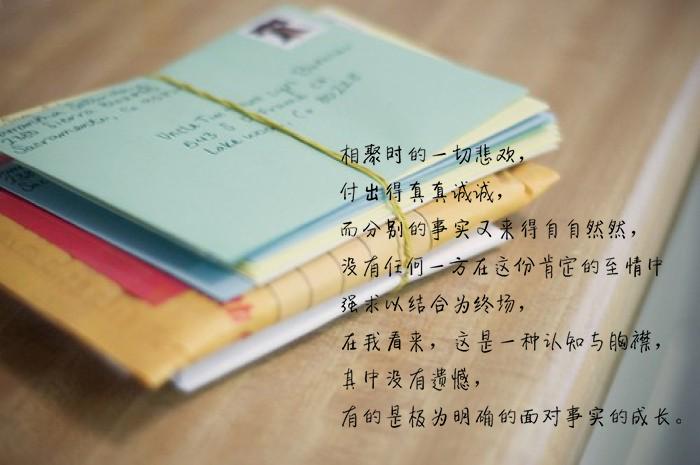 Sacramento, Ca
Uncle Tim
543 S
Lake
相聚时的一切悲欢，
付出得真真诚诚，
而分别的事实又来得自自然然，
没有任何一方在这份肯定的至情中
强求以结合为终场，
在我看来，这是一种认知与胸襟，
其中没有遗憾，
有的是极为明确的面对事实的成长。